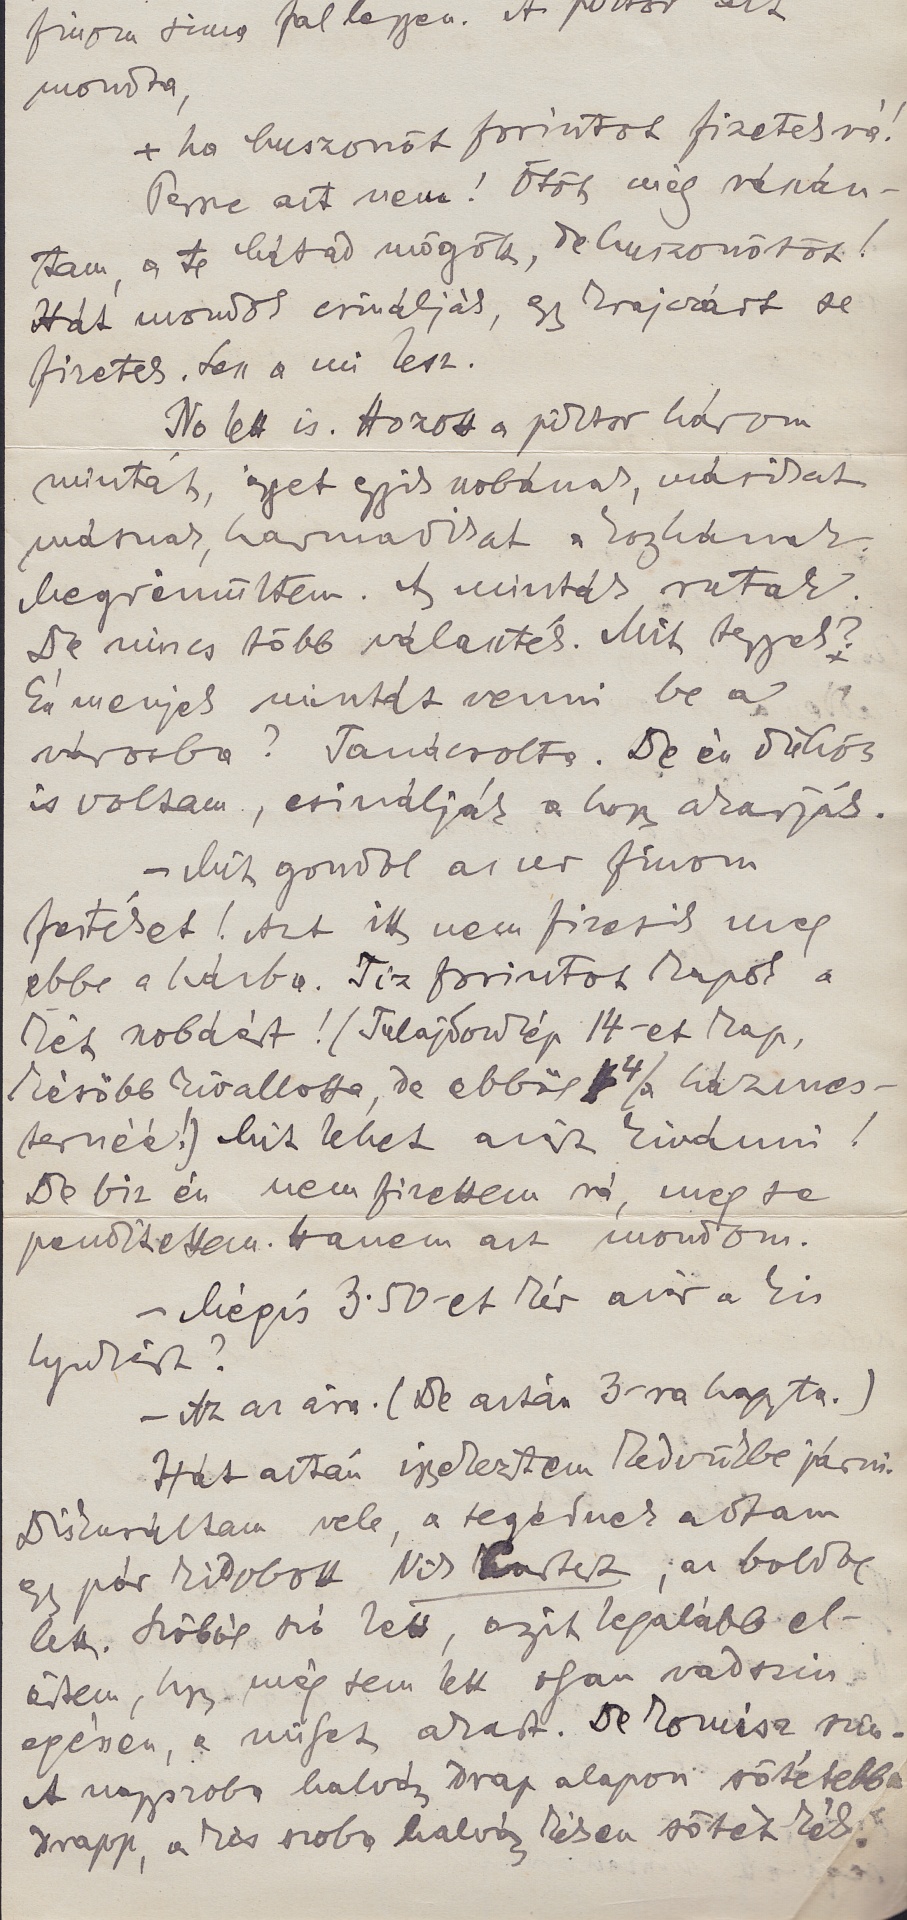 finom sima fal legyen. A piktor azt
mondta,
+ ha huszonöt forintot fizetek rá!
Persze azt nem! Ötöt még rászán-
tam, a te hátad mögött, de huszonötöt!
Hát mondok csinálják, egy krajczárt se
fizetek. Lesz a mi lesz.
No lett is. Hozott a piktor három
mintát, egyet egyik szobának, másikat
másnak, harmadikat a konyhának.
Megrémültem. A minták rutak.
De nincs több választék. Mit tegyek?
Én menjek mintát venni be a
városba? Tanácsolta. De én dühös
is voltam, csinálják a hogy akarják.
– Mit gondol az ur finom
festéket! Azt itt nem fizetik meg
ebbe a házba. Tiz forintot kapok a
két szobáért! (Tulajdonkép 14-et kap,
később kivallotta, de ebből 4 a házmes-
ternéé!) Mit lehet azért kivánni!
De biz én nem fizettem rá, meg se
pendítettem. Hanem azt mondom.
– Mégis 3.50-et kér azér a kis
lyukért?
– Az az ára. (De aztán 3-ra hagyta.)
Hát aztán igyekeztem kedvükbe járni.
Diskuráltam vele, a segédnek adtam
egy pár kidobott kis, az boldog
lett. Szóból szó lett, azért legalább el-
értem, hogy még sem lett olyan vadszin
egészen, a milyet akart. De komisz szin.
A nagyszoba halvány drap alapon sötétebb
drapp, a kis szoba halvány kéken sötét kék.